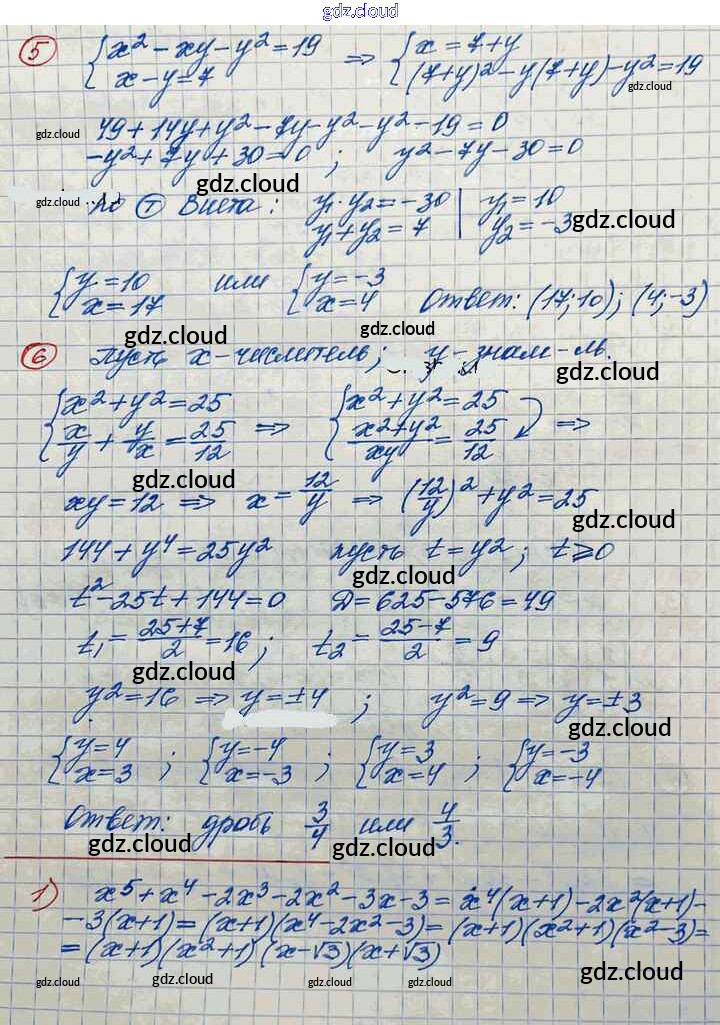 gdz.cloud
5 { x² - xy - y² = 19 ⇒ { x = 7 + y
{ x - y = 7 { (7+y)² - y(7+y) - y² = 19
gdz.cloud
gdz.cloud 49 + 14y + y² - 7y - y² - y² - 19 = 0
-y² + 7y + 30 = 0 ; y² - 7y - 30 = 0
gdz.cloud
gdz.cloud По Т Виета: y₁·y₂ = -30 | y₁ = 10
y₁ + y₂ = 7 | y₂ = -3
gdz.cloud
{ y = 10 или { y = -3
{ x = 17 { x = 4 Ответ: (17; 10); (4; -3)
gdz.cloud gdz.cloud
6 Пусть x - числитель; y - знам-ль.
gdz.cloud
{ x² + y² = 25 ⇒ { x² + y² = 25 ⇒
{ x/y + y/x = 25/12 { (x² + y²)/xy = 25/12
gdz.cloud gdz.cloud
xy = 12 ⇒ x = 12/y ⇒ (12/y)² + y² = 25
gdz.cloud
144 + y⁴ = 25y² пусть t = y²; t ⩾ 0
gdz.cloud
t² - 25t + 144 = 0 D = 625 - 576 = 49
t₁ = (25+7)/2 = 16; t₂ = (25-7)/2 = 9
gdz.cloud
y² = 16 ⇒ y = ±4 ; y² = 9 ⇒ y = ±3
gdz.cloud
{ y = 4 ; { y = -4 ; { y = 3 ; { y = -3
{ x = 3 { x = -3 { x = 4 { x = -4
Ответ: дробь 3/4 или 4/3.
gdz.cloud gdz.cloud
1) x⁵ + x⁴ - 2x³ - 2x² - 3x - 3 = x⁴(x+1) - 2x²(x+1) -
- 3(x+1) = (x+1)(x⁴ - 2x² - 3) = (x+1)(x²+1)(x²-3) =
= (x+1)(x²+1)(x-√3)(x+√3)
gdz.cloud gdz.cloud gdz.cloud gdz.cloud gdz.cloud